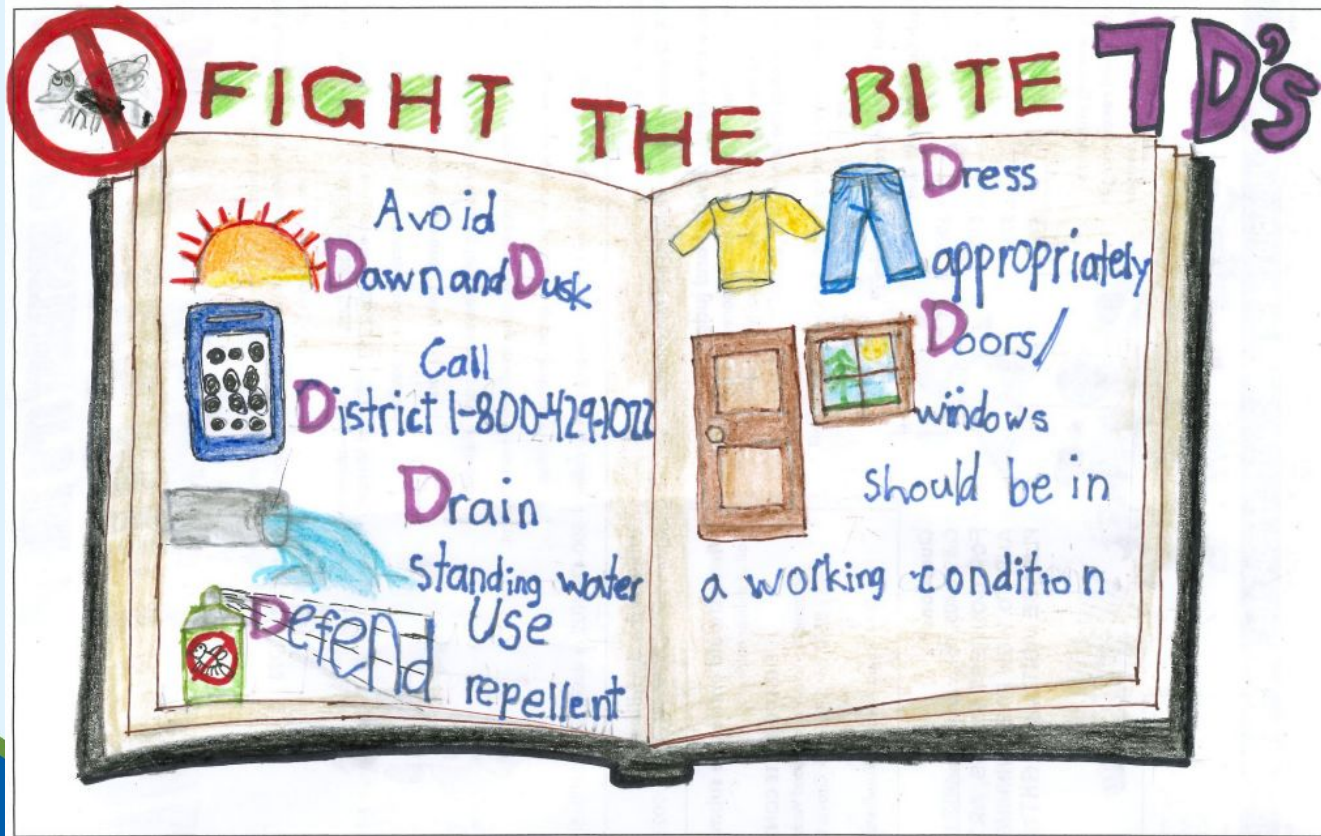 FIGHT THE BITE 7D's
Avoid
Dawn and Dusk
Call
District 1-800-429-1022
Drain
standing water
Defend Use
repellent
Dress
appropriately
Doors/
windows
should be in
a working condition